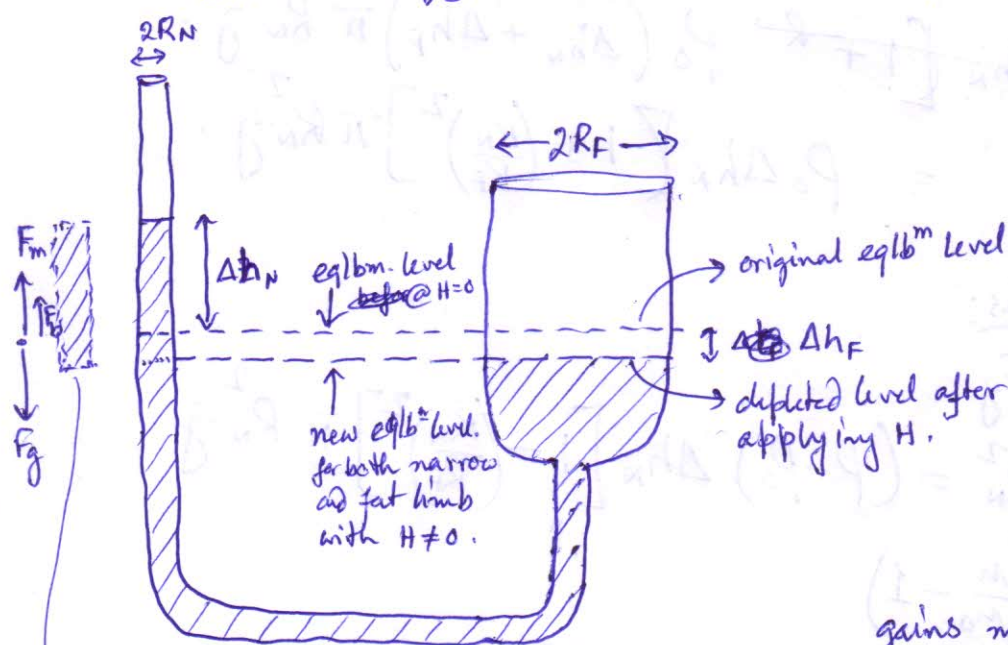 2R_N
2R_F
F_m
F_b
F_g
Δh_N
eqlbm. level
@ H=0
original eqlb^m level
Δh_F
depleted level after
applying H.
new eqlb^m level.
for both narrow
and fat limb
with H≠0.
gains m